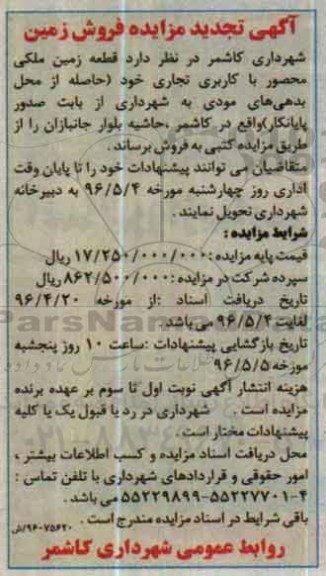 آگهی تجدید مزایده فروش زمین
شهرداری کاشمر در نظر دارد قطعه زمین ملکی
محصور با کاربری تجاری خود (حاصله از محل
بدهی‌های مودی به شهرداری از بابت صدور
پایانکار)واقع در کاشمر ،حاشیه بلوار جانبازان را از
طریق مزایده کتبی به فروش برساند .
متقاضیان می توانند پیشنهادات خود را تا پایان وقت
اداری روز چهارشنبه مورخه ۹۶/۵/۴ به دبیرخانه
شهرداری تحویل نمایند .
شرایط مزایده :
قیمت پایه مزایده :۱۷/۲۵۰/۰۰۰/۰۰۰ ریال
سپرده شرکت در مزایده :۸۶۲/۵۰۰/۰۰۰ ریال
تاریخ دریافت اسناد :از مورخه ۹۶/۴/۲۰
لغایت ۹۶/۵/۴ می باشد .
تاریخ بازگشایی پیشنهادات :ساعت ۱۰ روز پنجشبه
مورخه ۹۶/۵/۵
هزینه انتشار آگهی نوبت اول تا سوم بر عهده برنده
مزایده است . شهرداری در رد یا قبول یک یا کلیه
پیشنهادات مختار است .
محل دریافت اسناد مزایده و کسب اطلاعات بیشتر ،
امور حقوقی و قراردادهای شهرداری با تلفن تماس :
۵۵۲۲۹۸۹۹-۵۵۲۲۷۷۰۱-۴ می باشد .
باقی شرایط در اسناد مزایده مندرج است . ۹۶۰۷۵۶۲۰/ش
روابط عمومی شهرداری کاشمر